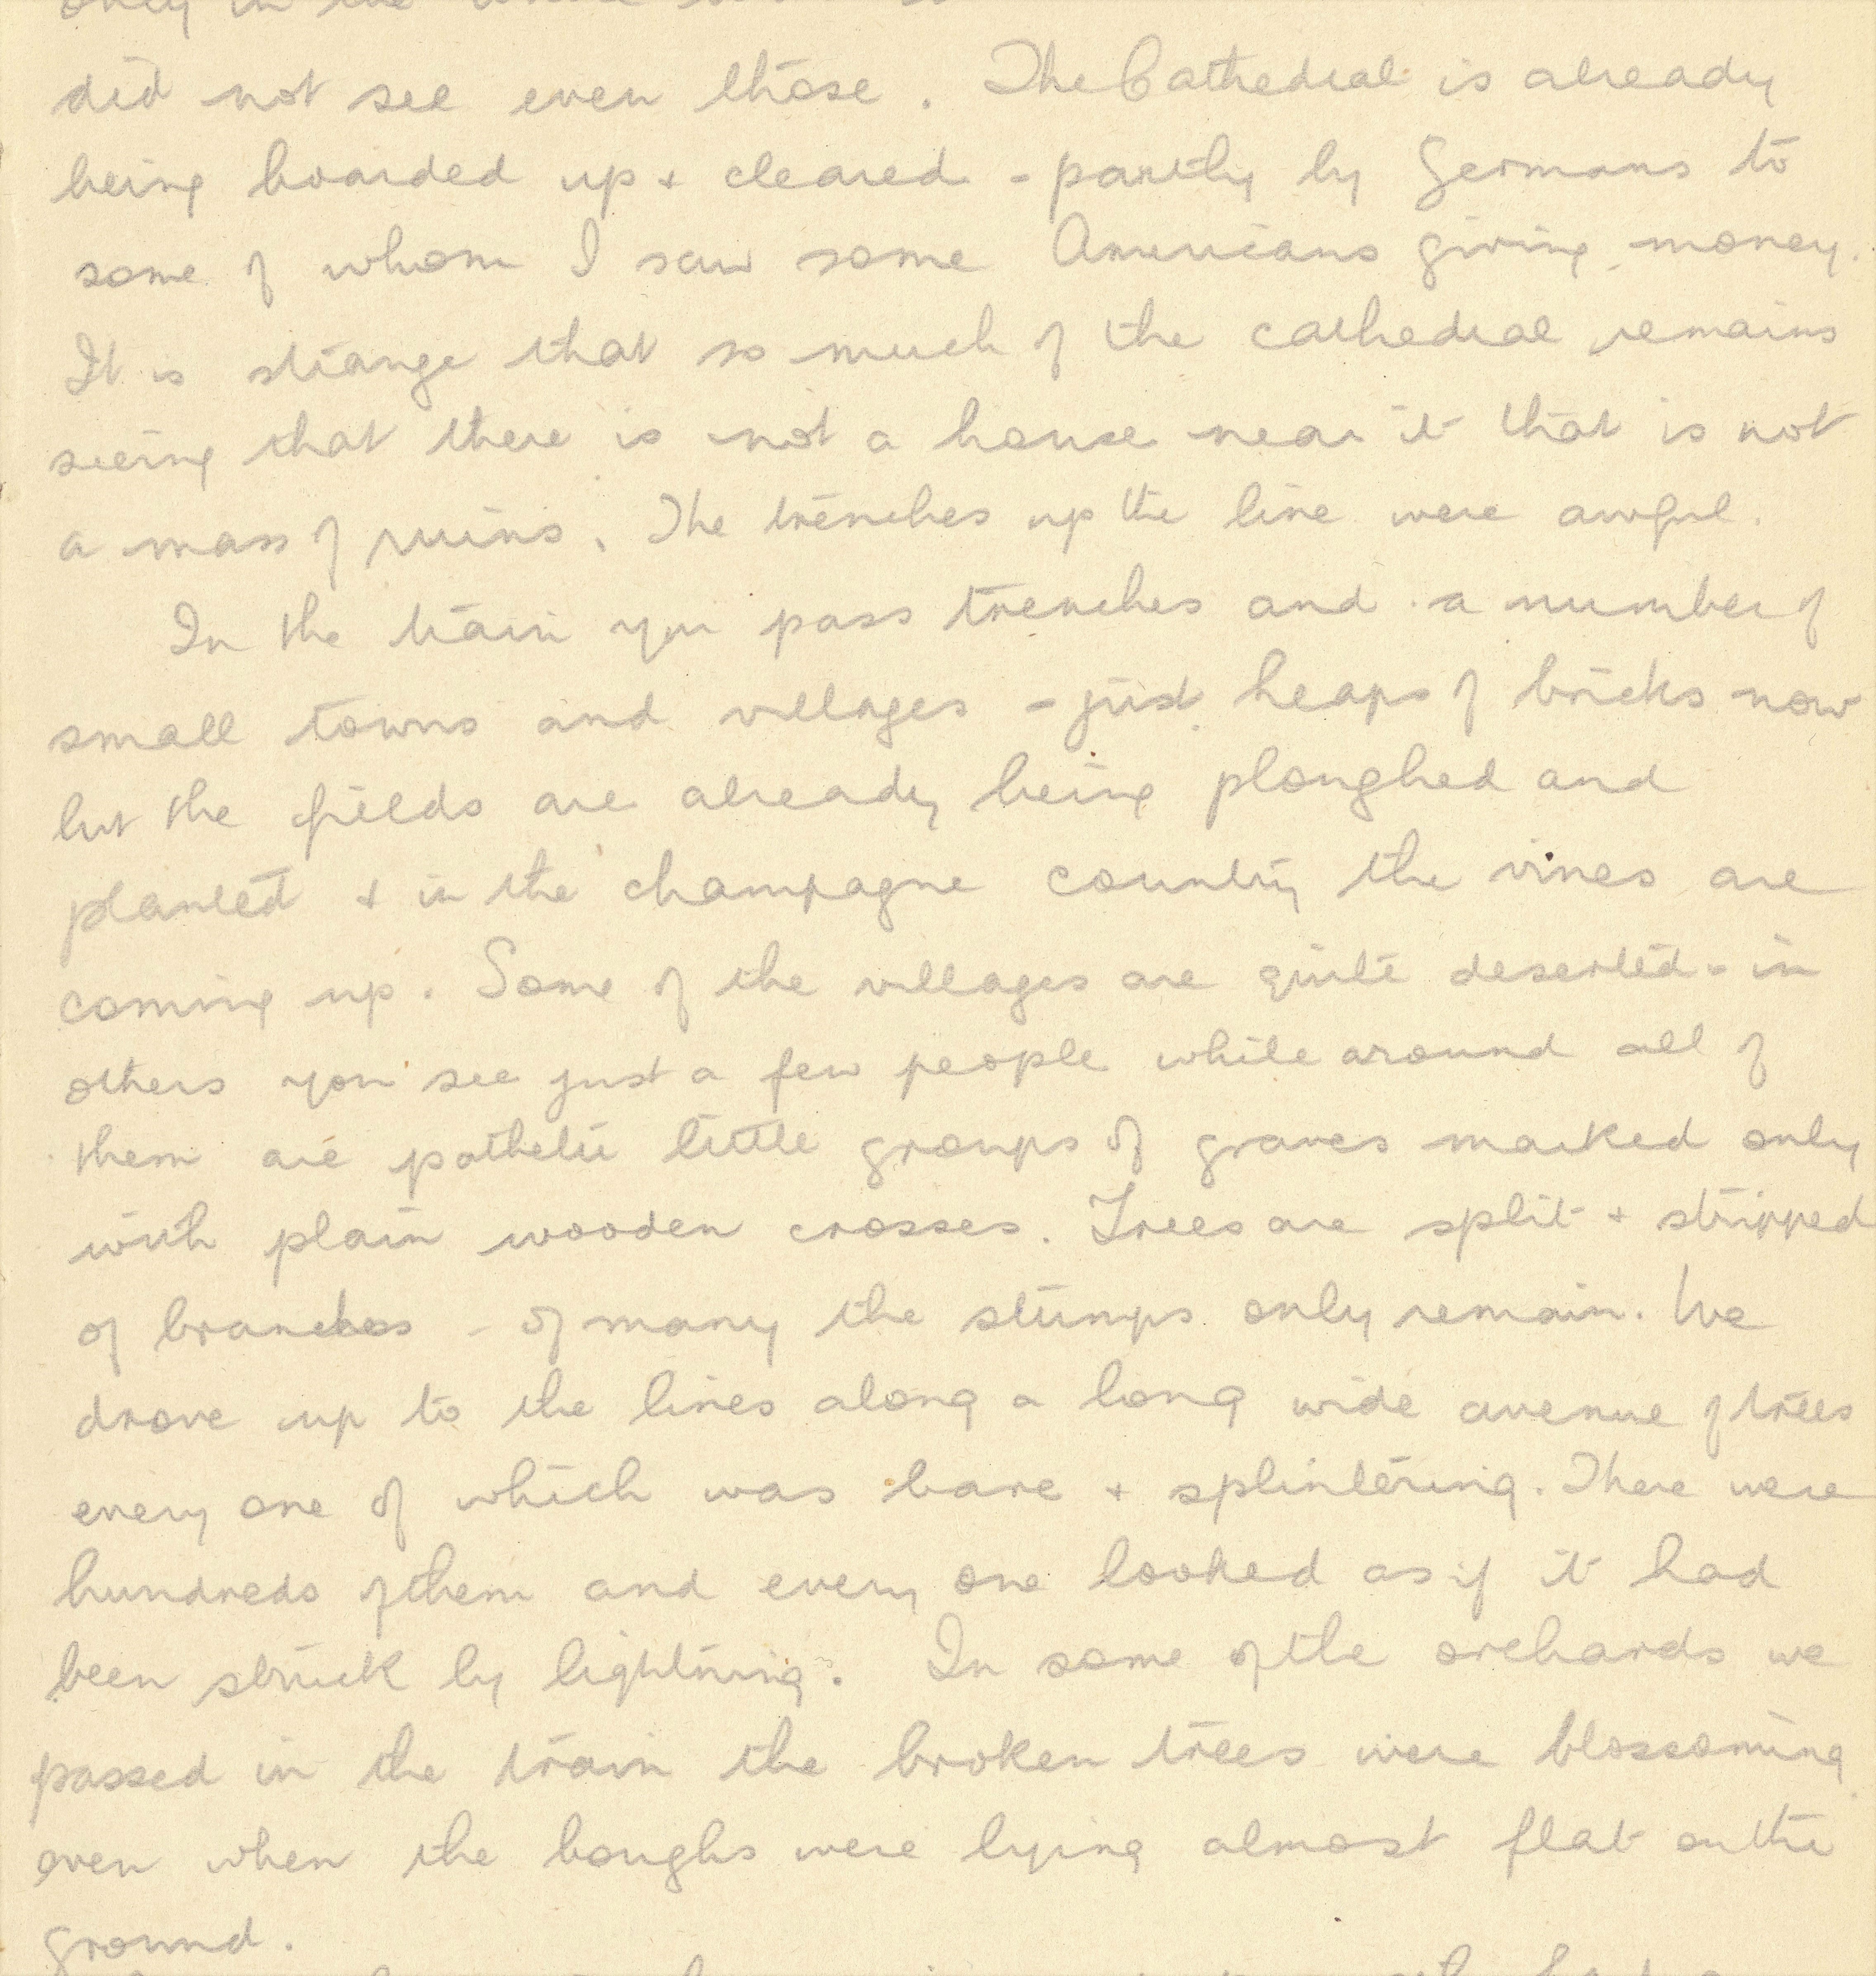 only in the
did not see even those. The Cathedral is already
being boarded up + cleared - partly by Germans to
some of whom I saw some Americans giving money.
It is strange that so much of the cathedral remains
seeing that there is not a house near it that is not
a mass of ruins. The trenches up the line were awful.
In the train you pass trenches and a number of
small towns and villages - just heaps of bricks now
but the fields are already being ploughed and
planted + in the champagne country the vines are
coming up. Some of the villages are quite deserted - in
others you see just a few people while around all of
them are pathetic little groups of graves marked only
with plain wooden crosses. Trees are split + stripped
of branches - of many the stumps only remain. We
drove up to the lines along a long wide avenue of trees
every one of which was bare + splintering. There were
hundreds of them and every one looked as if it had
been struck by lightning. In some of the orchards we
passed in the train the broken trees were blossoming
even when the boughs were lying almost flat on the
ground.